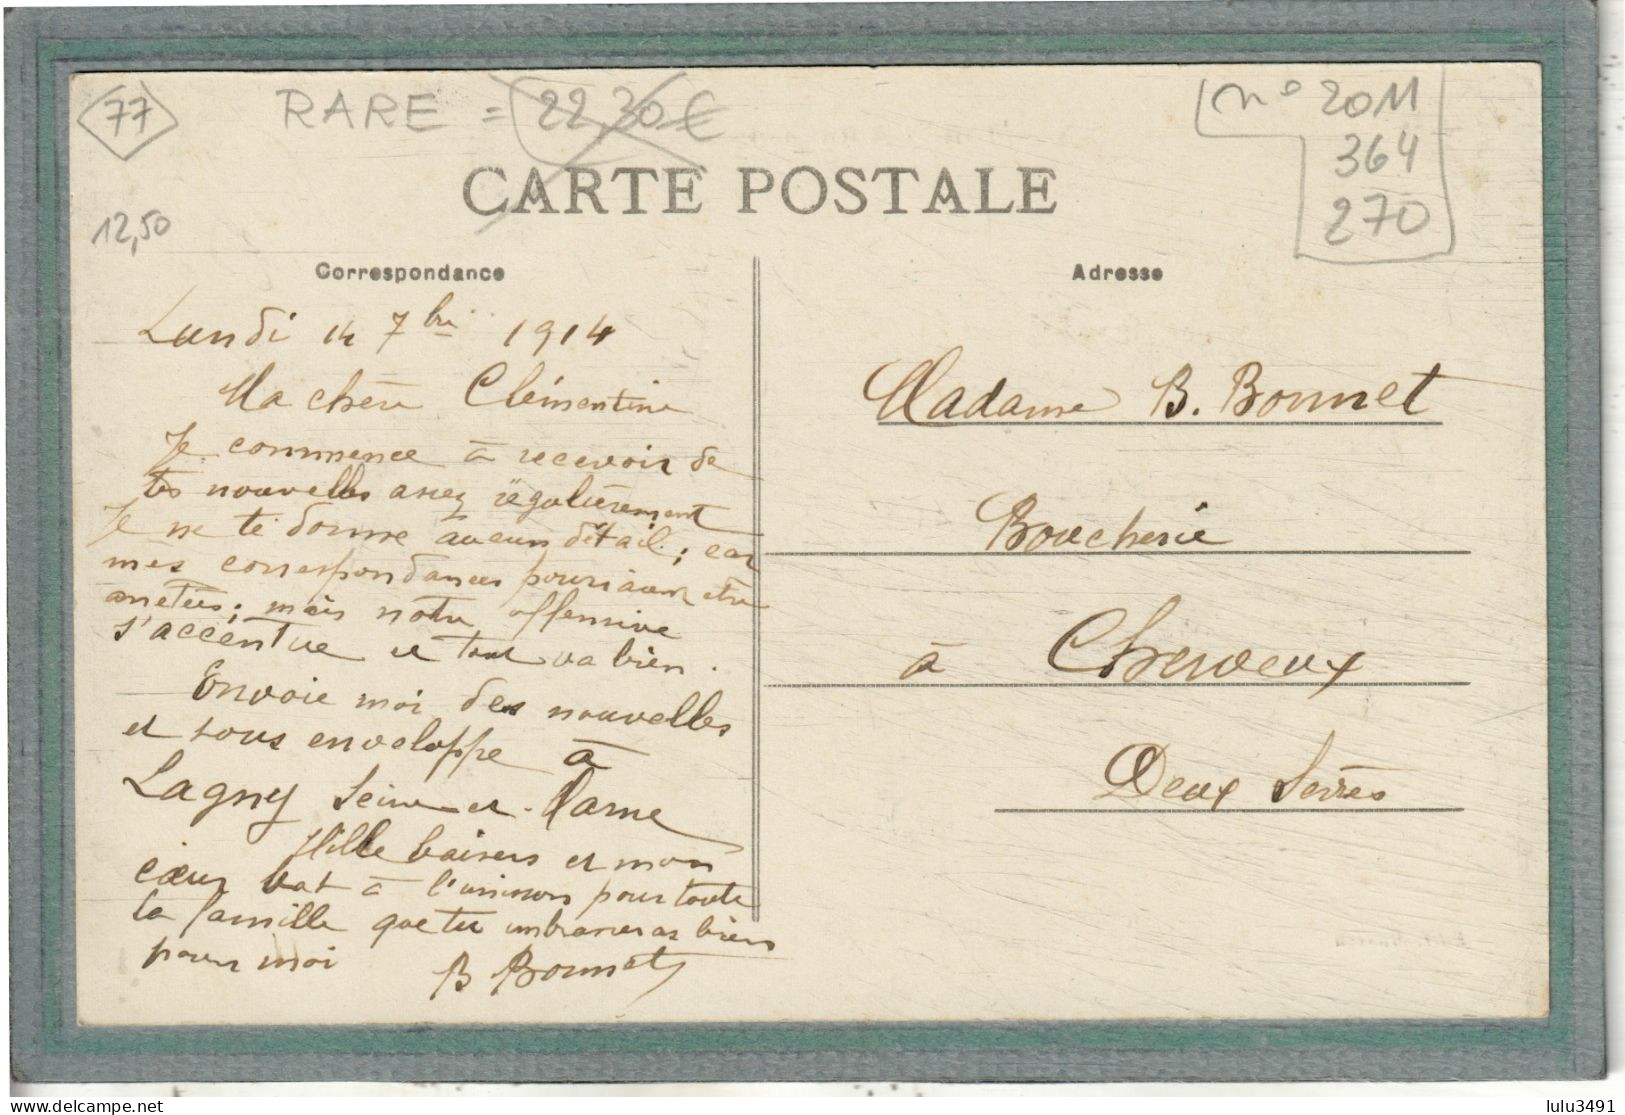 77
RARE = 22,30€
n° 2011
364
270
12,50
CARTE POSTALE
Correspondance
Adresse
Lundi 14 7bre 1914
Ma chère Clémentine
Je commence à recevoir de
tes nouvelles assez régulièrement
Je ne te donne aucun détail ; car
mes correspondances pourraient être
arrêtées ; mais notre offensive
s'accentue et tout va bien.
Envoie moi des nouvelles
et sous enveloppe à
Lagny Seine et Marne
Mille baisers et mon
cœur bat à l'unisson pour toute
la famille que tu embrasseras bien
pour moi
B Bonnet
Madame B. Bonnet
Boucherie
à Cherveux
Deux Sèvres
delcampe.net
lulu3491